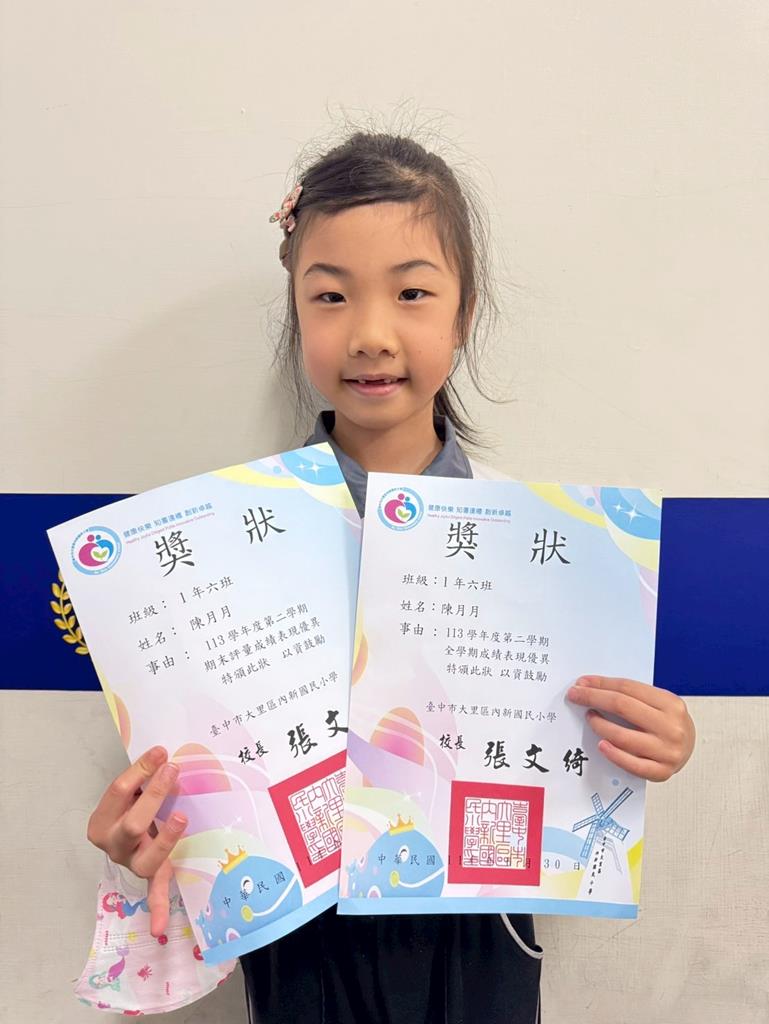 健康快樂 知書達禮 創新卓越
Healthy Joyful Erudit Polite Innovative Outstanding
獎 狀
班級：1年六班
姓名：陳月月
事由：113學年度第二學期
期末評量成績表現優異
特頒此狀 以資鼓勵
臺中市大里區內新國民小學
校長 張文
中華民國
健康快樂 知書達禮 創新卓越
獎 狀
班級：1年六班
姓名：陳月月
事由：113學年度第二學期
全學期成績表現優異
特頒此狀 以資鼓勵
臺中市大里區內新國民小學
校長 張文綺
中華民國 30 日